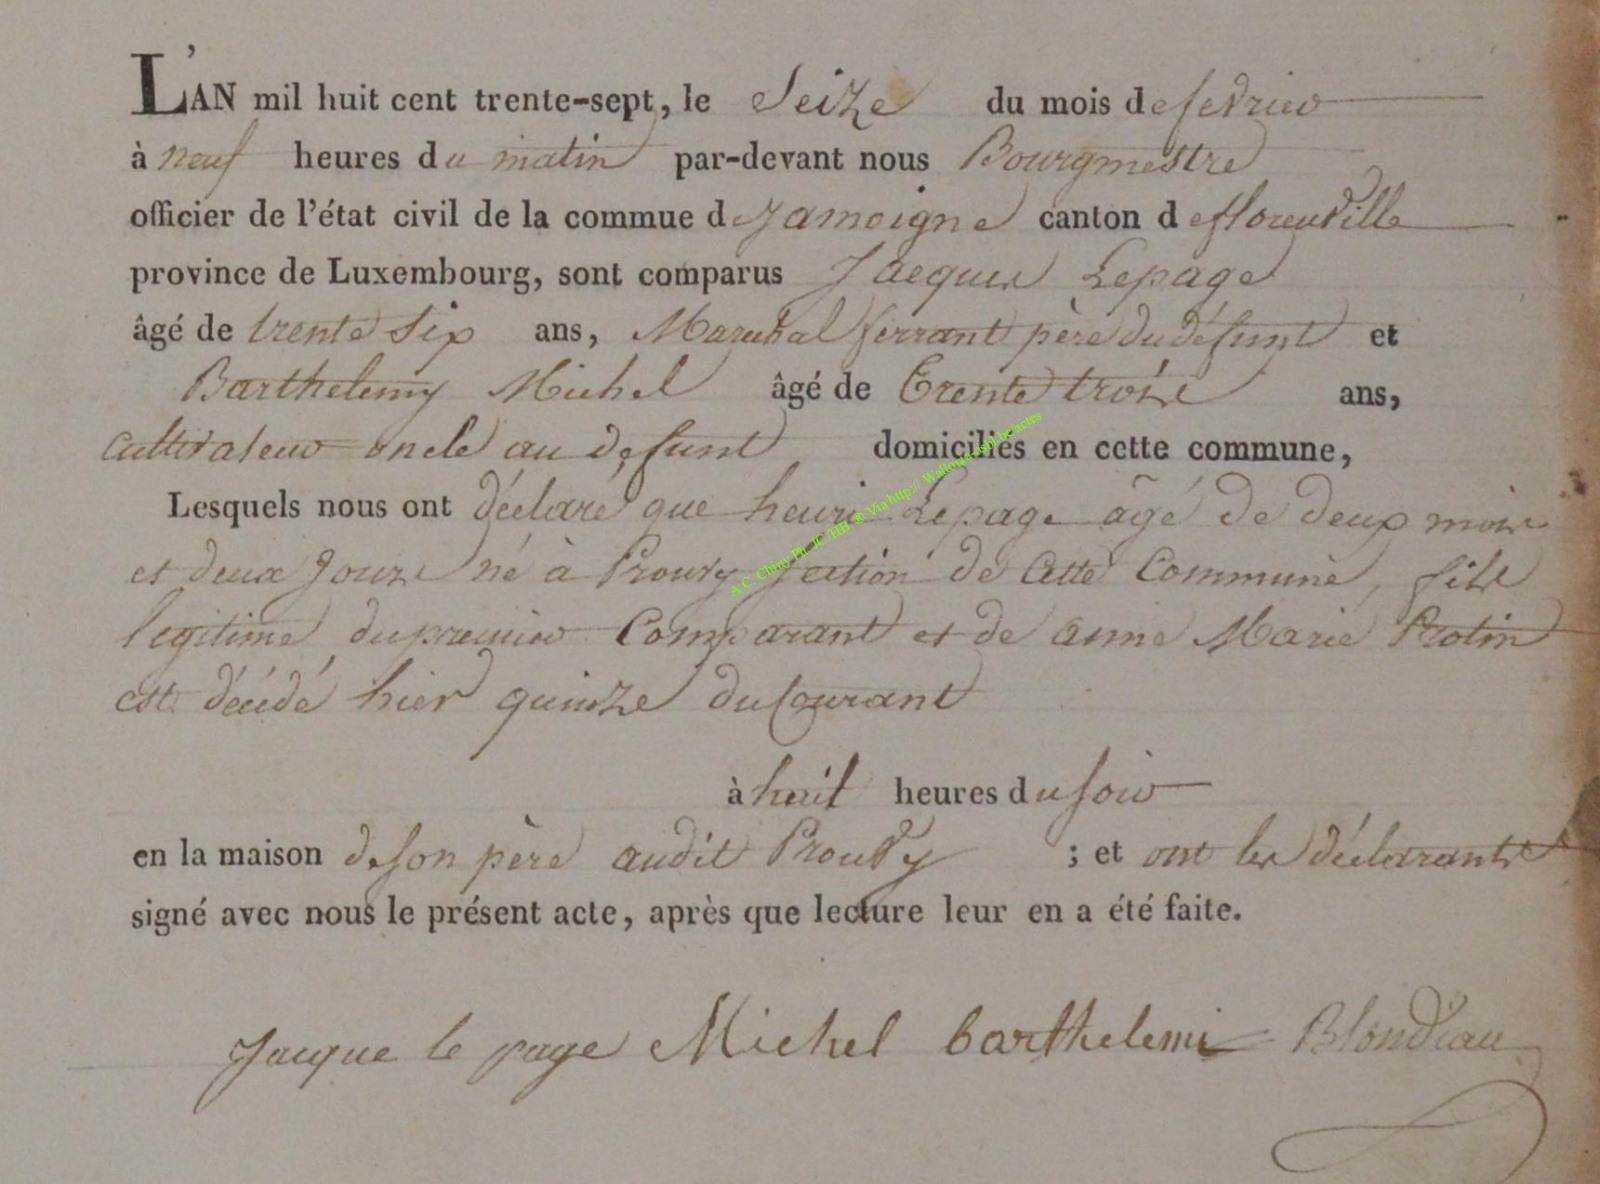 L'AN mil huit cent trente-sept, le Seize du mois de fevrier
à neuf heures du matin par-devant nous Bourgmestre
officier de l'état civil de la commue d Jamoigne canton de florenville
province de Luxembourg, sont comparus Jacques Lepage
âgé de trente Six ans, Marechal ferrant père du défunt et
Barthelemy Michel âgé de Trente trois ans,
Cultivateur oncle au defunt domiciliés en cette commune,
Lesquels nous ont déclaré que henri Lepage agé de deux mois
et deux Jours né à Prouvy Section de Cette Commune, fils
legitime du premier Comparant et de anne Marie Protin
est décédé hier quinze du Courant
à huit heures du soir
en la maison de son père audit Prouvy ; et ont les déclarants
signé avec nous le présent acte, après que lecture leur en a été faite.
Jacque le page Michel barthelemi Blondiau